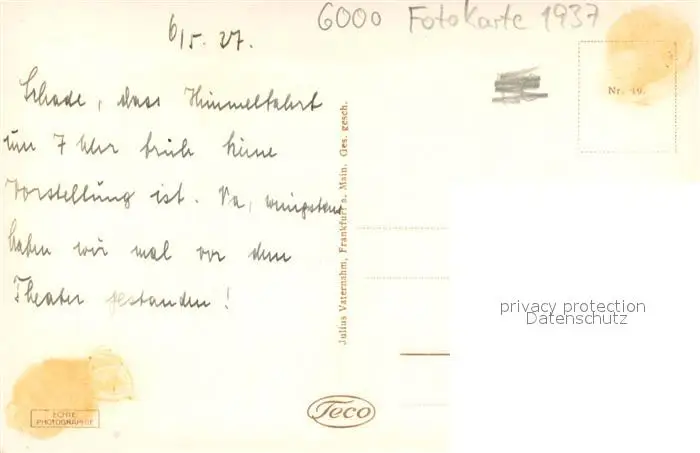 6000 Fotokarte 1937
6/5. 27.
Schade, dass Himmelfahrt
um 7 Uhr früh keine
Vorstellung ist. Na, wenigstens
haben wir mal vor dem
Theater gestanden!
Julius Vaternahm, Frankfurt a. Main. Ges. gesch.
Nr. 49.
privacy protection
Datenschutz
ECHTE
PHOTOGRAPHIE
Teco